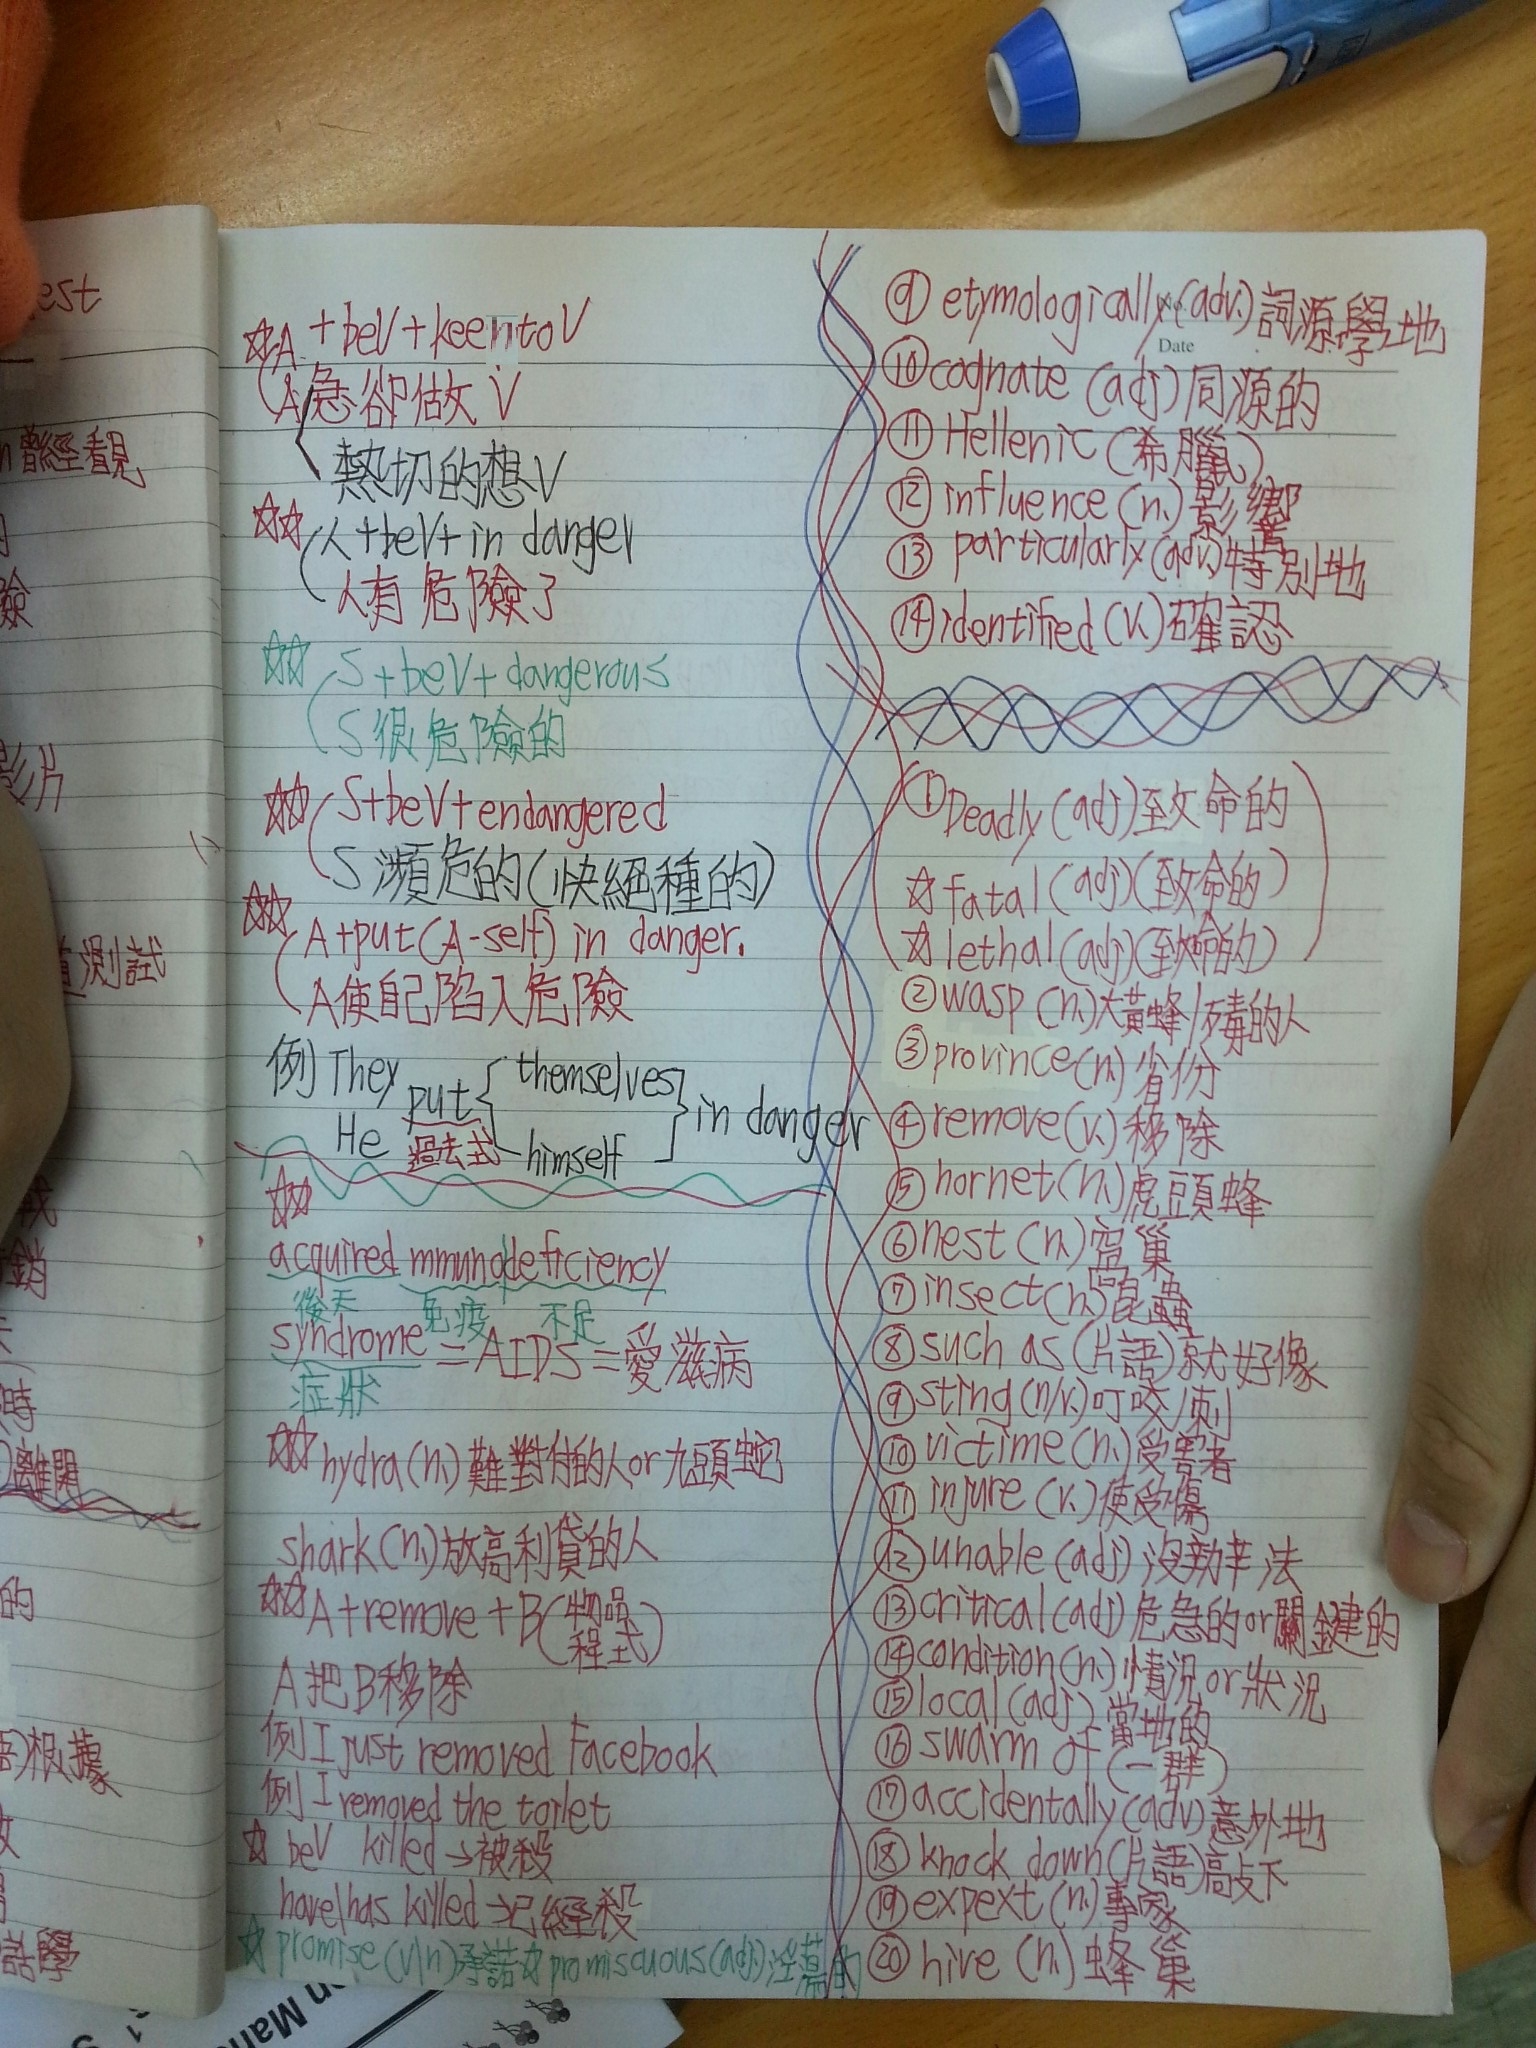 est
曾經看見
險
影片
測試
離開
根據
語學
☆A + beV + keen to V
A急卻做V
熱切的想V
☆☆ 人+beV+in danger
人有危險了
☆☆ S+beV+dangerous
S很危險的
☆☆ S+beV+endangered
S瀕危的(快絕種的)
☆☆ A+put(A-self) in danger.
A使自己陷入危險
例) They put { themselves } in danger
He 過去式 himself
☆☆
acquired mmunodeficiency
後天 免疫 不足
syndrome = AIDS = 愛滋病
症狀
☆☆ hydra (n.) 難對付的人 or 九頭蛇
shark (n.) 放高利貸的人
☆☆ A+remove+B(物品
程式)
A把B移除
例 I just removed Facebook
例 I removed the toilet
☆ beV killed → 被殺
have/has killed → 已經殺
☆ promise (v/n) 承諾 ☆ promiscuous (adj.) 淫蕩的
No.
Date
⑨ etymologically (adv.) 詞源學地
⑩ cognate (adj) 同源的
⑪ Hellenic (希臘)
⑫ influence (n.) 影響
⑬ particularly (adv) 特別地
⑭ identified (v.) 確認
① Deadly (adj) 致命的
☆ fatal (adj) (致命的)
☆ lethal (adj) (致命的)
② wasp (n.) 大黃蜂/歹毒的人
③ province (n.) 省份
④ remove (v.) 移除
⑤ hornet (n.) 虎頭蜂
⑥ nest (n.) 窩巢
⑦ insect (n.) 昆蟲
⑧ such as (片語) 就好像
⑨ sting (n/v.) 叮咬/刺
⑩ victime (n.) 受害者
⑪ injure (v.) 使受傷
⑫ unable (adj) 沒辦法
⑬ critical (adj) 危急的 or 關鍵的
⑭ condition (n.) 情況 or 狀況
⑮ local (adj.) 當地的
⑯ swarm of (一群)
⑰ accidentally (adv) 意外地
⑱ knock down (片語) 敲下
⑲ expext (n.) 專家
⑳ hive (n.) 蜂巢
on Man